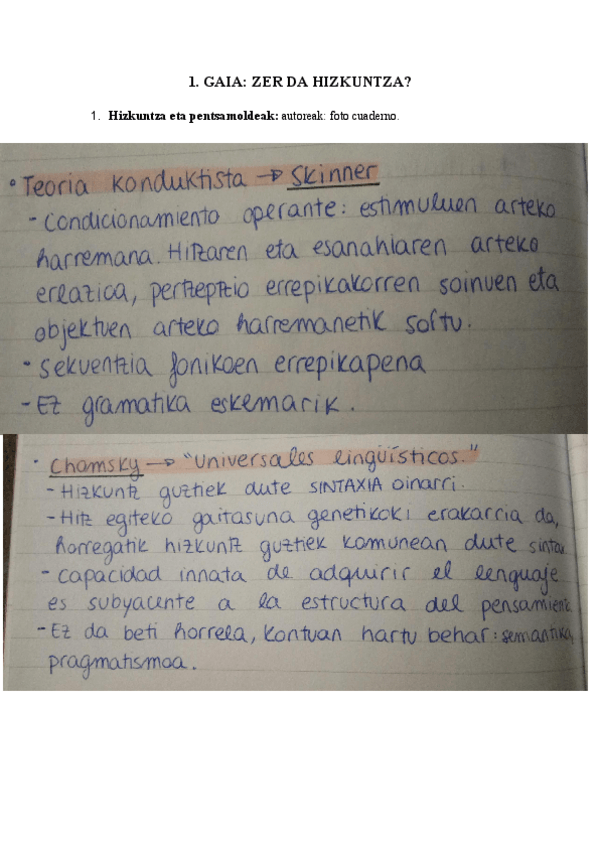 1. GAIA: ZER DA HIZKUNTZA?
1. Hizkuntza eta pentsamoldeak: autoreak: foto cuaderno.
• Teoria konduktista → Skinner
- Condicionamiento operante: estimuluen arteko
harremana. Hitzaren eta esanahiaren arteko
erlazioa, pertzeptzio errepikakorren soinuen eta
objektuen arteko harremanetik sortu.
- Sekuentzia fonikoen errepikapena
- Ez gramatika eskemarik.
· Chomsky → "Universales lingüísticos."
- Hizkuntz guztiek dute SINTAXIA oinarri.
- Hitz egiteko gaitasuna genetikoki erakarria da,
horregatik hizkuntz guztiek komunean dute sintax
- Capacidad innata de adquirir el lenguaje
es subyacente a la estructura del pensamient
- Ez da beti horrela, kontuan hartu behar: semantika,
pragmatismoa.